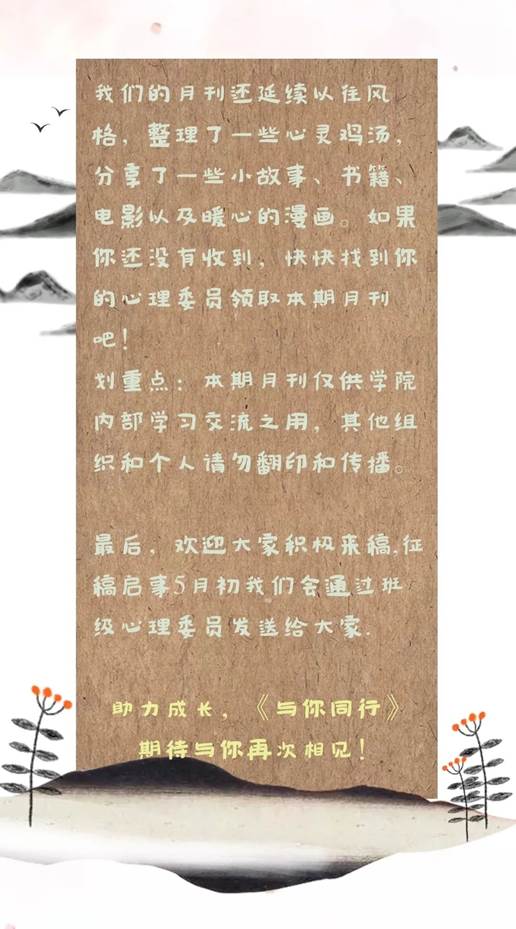 我们的月刊还延续以往风
格，整理了一些心灵鸡汤，
分享了一些小故事、书籍、
电影以及暖心的漫画。如果
你还没有收到，快快找到你
的心理委员领取本期月刊
吧！
划重点：本期月刊仅供学院
内部学习交流之用，其他组
织和个人请勿翻印和传播。
最后，欢迎大家积极来稿，征
稿启事5月初我们会通过班
级心理委员发送给大家.
助力成长，《与你同行》
期待与你再次相见！